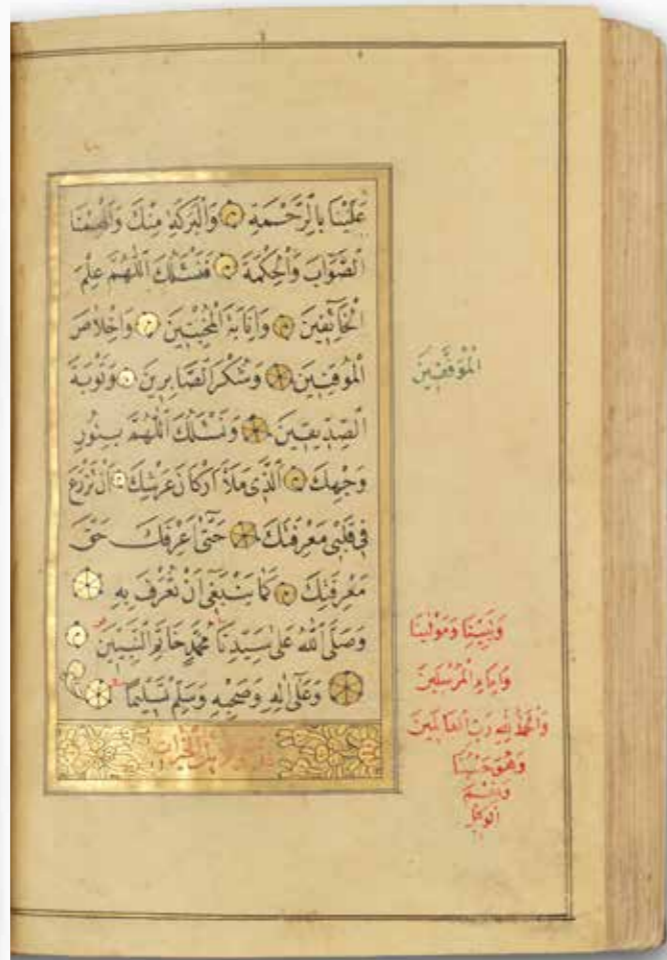 عَلَيْنَا بِالرَّحْمَةِ وَالْبَرَكَةِ مِنْكَ وَاَلْهِمْنَا
الصَّوَابَ وَالْحِكْمَةَ فَنَسْئَلُكَ اَللّٰهُمَّ عِلْمَ
الْخَائِفِينَ وَاِنَابَةَ الْمُخْبِتِينَ وَاِخْلَاصَ
الْمُوقِنِينَ وَشُكْرَ الصَّابِرِينَ وَتَوْبَةَ
الصِّدِّيقِينَ وَنَسْئَلُكَ اَللّٰهُمَّ بِنُورِ
وَجْهِكَ الَّذِى مَلَأَ اَرْكَانَ عَرْشِكَ اَنْ تَزْرَعَ
فِى قَلْبِى مَعْرِفَتَكَ حَتّٰى اَعْرِفَكَ حَقَّ
مَعْرِفَتِكَ كَمَا يَنْبَغِى اَنْ تُعْرَفَ بِهِ
وَصَلَّى اللّٰهُ عَلٰى سَيِّدِنَا مُحَمَّدٍ خَاتَمِ النَّبِيِّينَ
وَعَلٰى اٰلِهِ وَصَحْبِهِ وَسَلِّمْ تَسْلِيمًا
الْمُوَفَّقِينَ
وَنَبِيِّنَا وَمَوْلٰينَا
وَاِمَامِ الْمُرْسَلِينَ
وَالْحَمْدُ لِلّٰهِ رَبِّ الْعَالَمِينَ
وَهُوَ حَسْبُنَا
وَنِعْمَ
الْوَكِيلُ